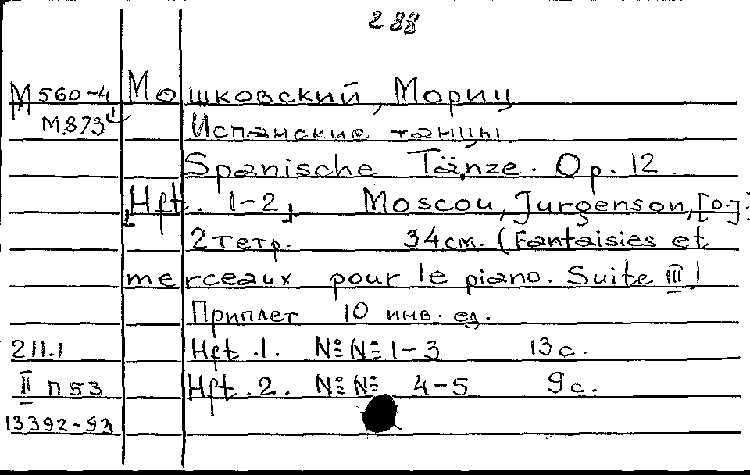 288
М 560-4 Мошковский, Мориц
М873 Испанские танцы
Spanische Tänze. Op. 12
[Hft. 1-2] Moscou, Jurgenson, [о.J.]
2 тетр. 34 см. (Fantaisies et
merceaux pour le piano. Suite III)
Приплет 10 инв. ед.
211.1 Hft. 1. №№ 1-3 13 с.
II п 53 Hft. 2. №№ 4-5 9 с.
13392-93